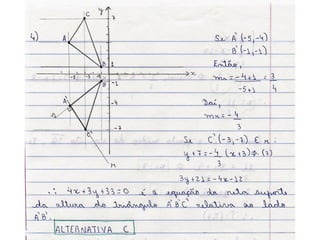 4)
y
C
7
A
4
B
1
x
-1
A'
-4
C'
-7
r
Se A'(-5,-4)
B'(-1,-1)
Então,
m₁ = -4+1 = 3
-5+1 4
Daí,
m₂ = -4
3
Se C'(-3,-7) ∈ r:
y+7 = -4 (x+3) ∅. (3)
3
3y+21 = -4x-12
∴ 4x+3y+33=0 é a equação da reta suporte
da altura do triângulo A'B'C' relativa ao lado
A'B'.
ALTERNATIVA C